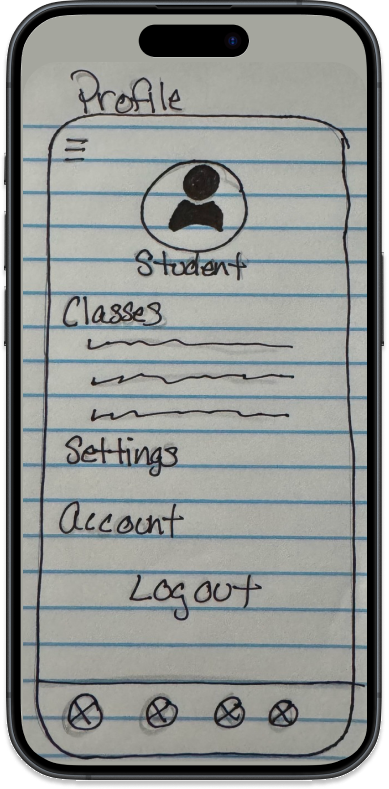 Profile
Student
Classes
Settings
Account
Log out